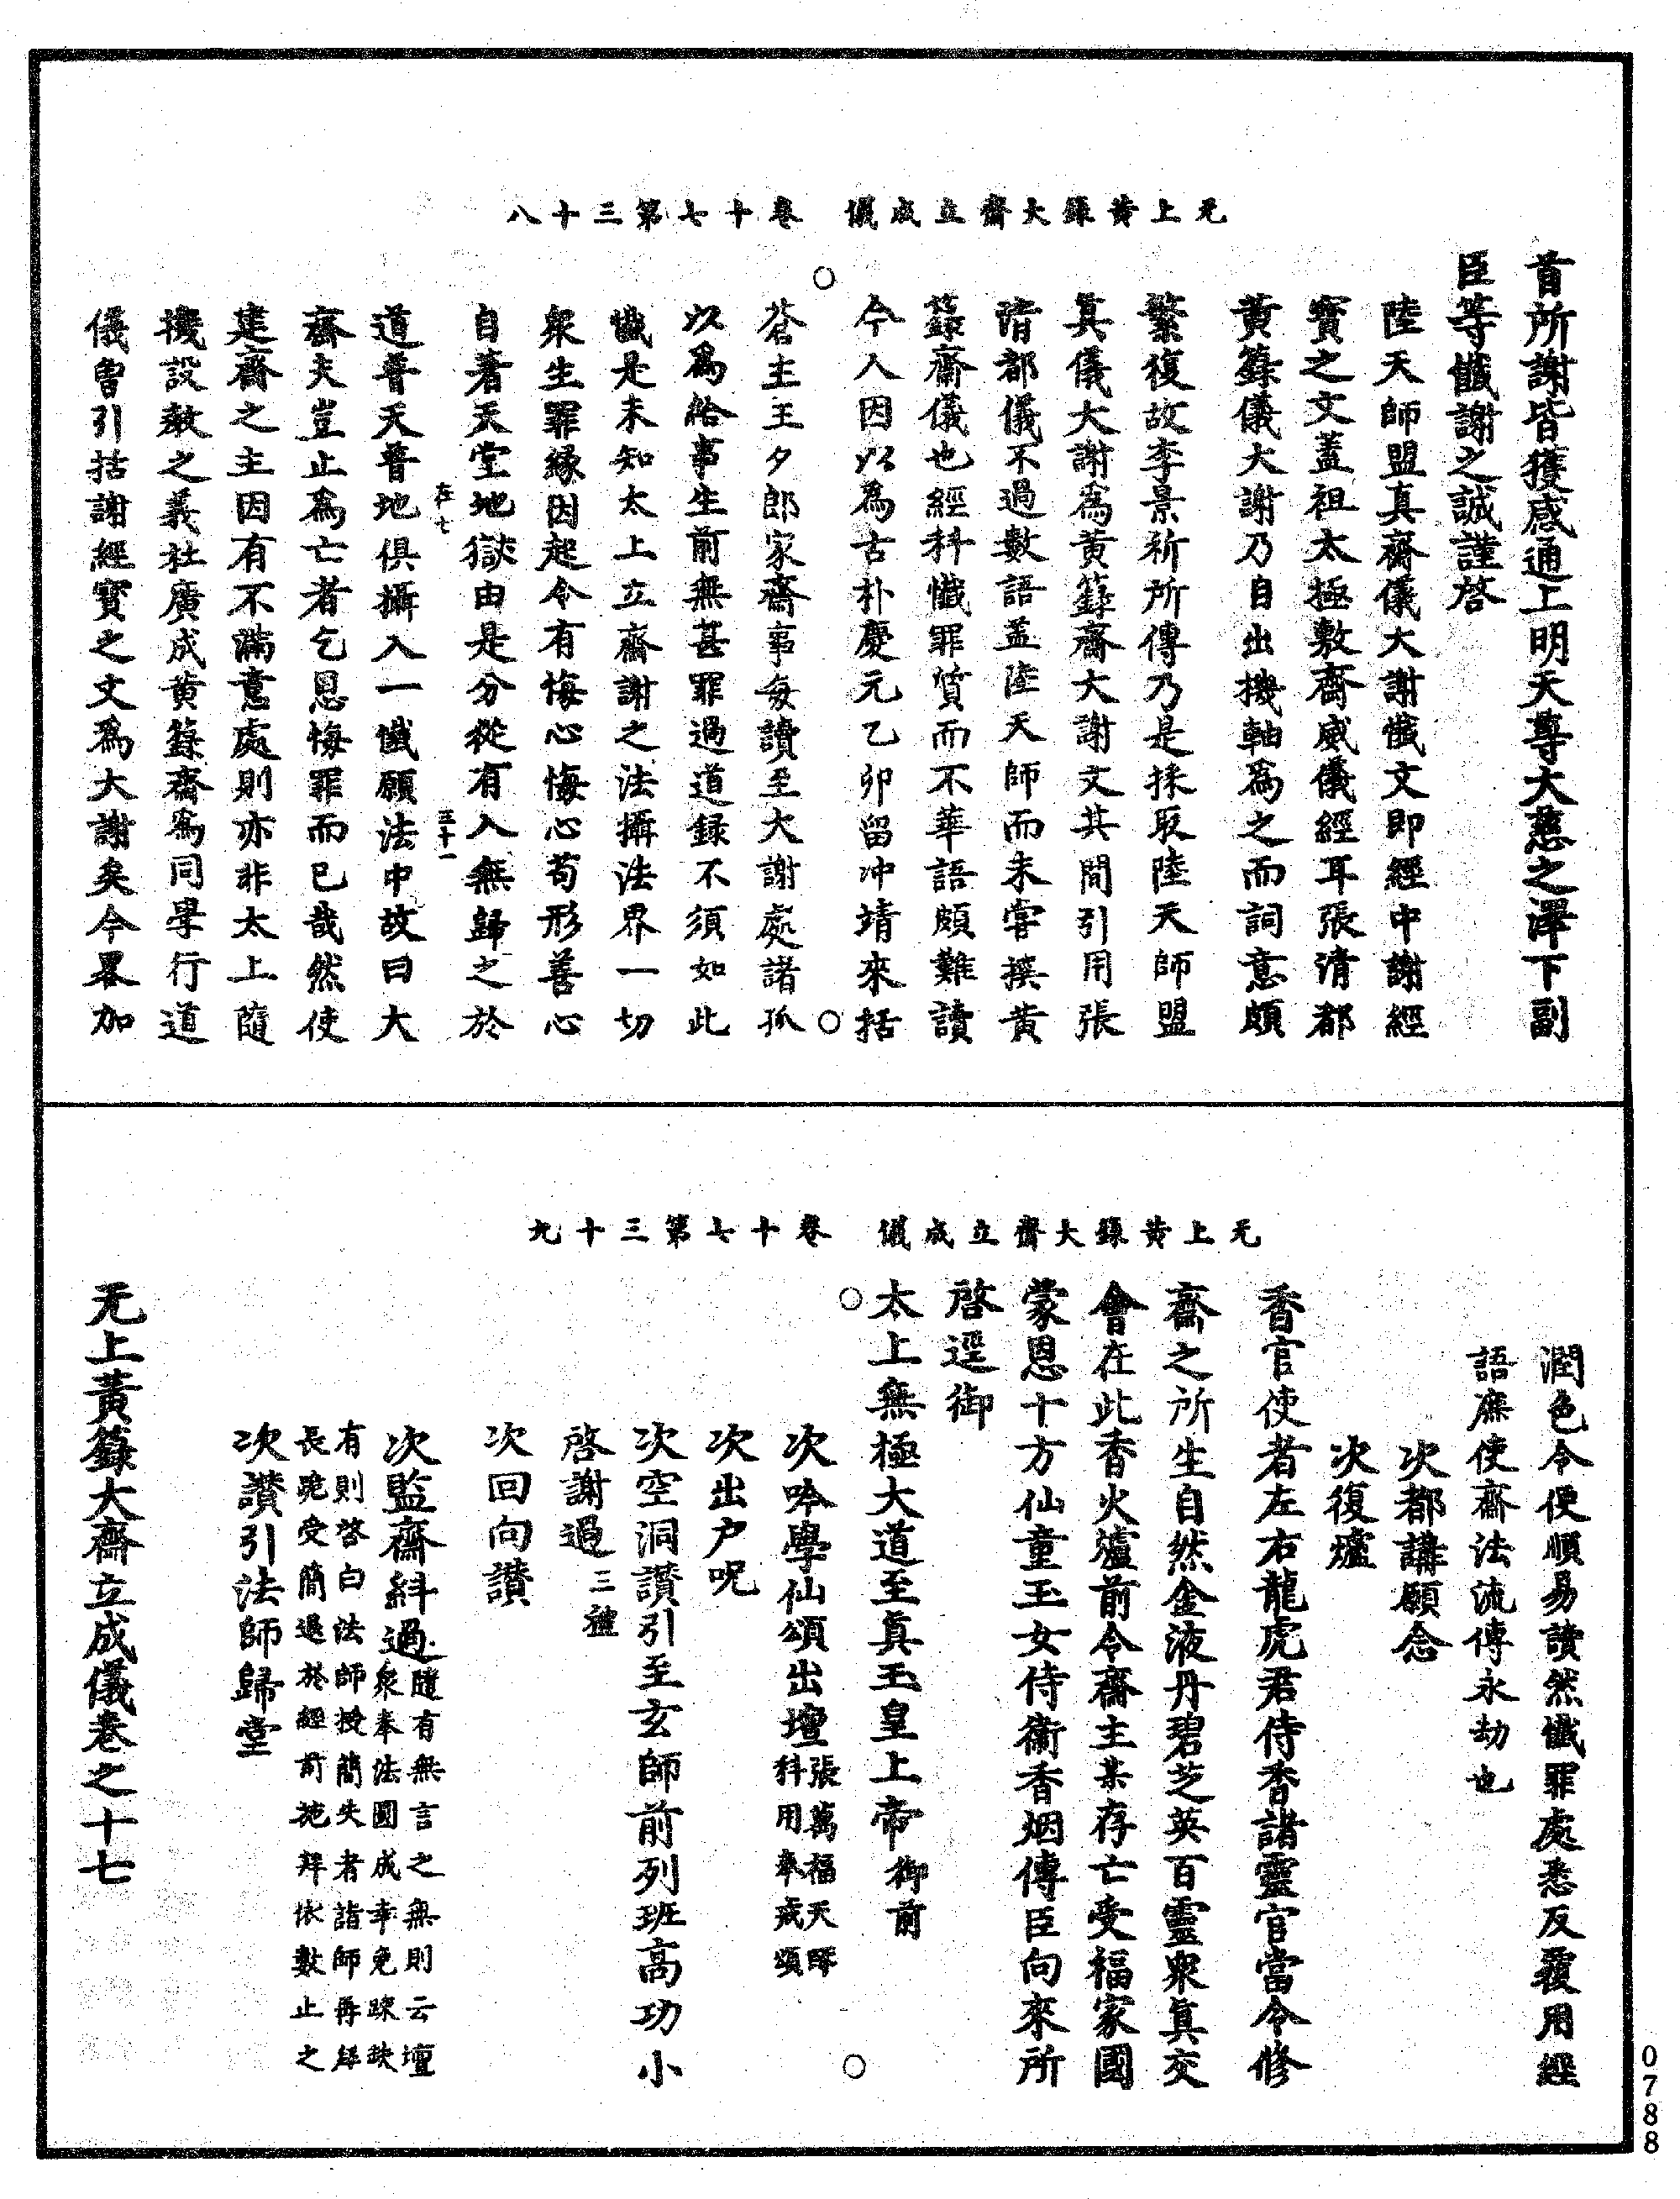 无上黃籙大齋立成儀　卷十七第三十八
首所謝皆獲感通上明天尊大慈之澤下副
臣等懺謝之誠謹啓
陸天師盟真齋儀大謝懺文即經中謝經
寶之文蓋祖太極敷齋威儀經耳張清都
黃籙儀大謝乃自出機軸爲之而詞意頗
繁複故李景祈所傳乃是採取陸天師盟
真儀大謝爲黃籙齋大謝文其間引用張
清都儀不過數語蓋陸天師而未嘗撰黃
籙齋儀也經科懺罪質而不華語頗難讀
今人因以爲古朴慶元乙卯留冲靖來括
蒼主王夕郎家齋事每讀至大謝處諸孤
以爲給事生前無甚罪過道録不須如此
懺是未知太上立齋謝之法攝法界一切
衆生罪緣因起令有悔心悔心苟形善心
自著天堂地獄由是分從有入無歸之於
在七　三十一
道普天普地俱攝入一懺願法中故曰大
齋夫豈止爲亡者乞恩悔罪而已哉然使
建齋之主因有不滿意處則亦非太上隨
機設教之義杜廣成黃籙齋爲同學行道
儀曾引括謝經寶之文爲大謝矣今畧加
无上黃籙大齋立成儀　卷十七第三十九
潤色令便順易讀然懺罪處悉反覆用經
語庶使齋法流傳永劫也
次都講願念
次復爐
香官使者左右龍虎君侍香諸靈官當令修
齋之所生自然金液丹碧芝英百靈衆真交
會在此香火爐前令齋主某存亡受福家國
蒙恩十方仙童玉女侍衛香烟傳臣向來所
啓逕御
太上無極大道至真玉皇上帝御前
次吟學仙頌出壇張萬福天師科用奉戒頌
次出户呪
次空洞讚引至玄師前列班高功小
啓謝過三禮
次回向讚
次監齋糾過隨有無言之無則云壇衆奉法圓成幸免踈缺
有則啓白法師授簡失者詣師再拜
長跪受簡退於經前施拜依數止之
次讚引法師歸堂
无上黃籙大齋立成儀卷之十七
0788